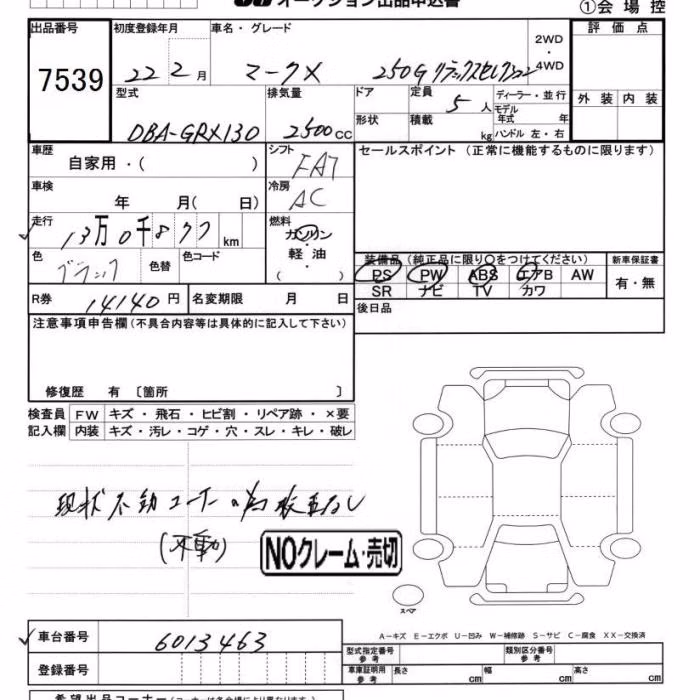 オークション出品申込書 ①会場控
出品番号 初度登録年月 車名・グレード 評価点
7539 22 2月 マークX 250G リラックスセレクション 2WD・4WD
外装 内装
型式 排気量 ドア 定員 5人 ディーラー・並行
モデル年式 年
DBA-GRX130 2500cc 形状 積載 kg ハンドル 左・右
車歴 シフト セールスポイント (正常に機能するものに限ります)
自家用・( ) FAT
車検 冷房
年 月( 日) AC
走行 燃料
13万0千877km ガソリン・軽油
色 色替 色コード ( ) 装備品(純正品に限り○をつけてください) 新車保証書
ブラック PS PW ABS エアB AW 有・無
SR ナビ TV カワ
R券 14140円 名変期限 月 日 後日品
注意事項申告欄(不具合内容等は具体的に記入して下さい)
修復歴 有 〔箇所 〕
検査員 FW キズ・飛石・ヒビ割・リペア跡・×要
記入欄 内装 キズ・汚レ・コゲ・穴・スレ・キレ・破レ
現状不動コーナー
(不動) NOクレーム・売切
スペア
A-キズ E-エクボ U-凹み W-補修跡 S-サビ C-腐食 XX-交換済
車台番号 6013463 型式指定番号 参考 類別区分番号 参考
登録番号 車庫証明用 参考 長さ cm 幅 cm 高さ cm
希望出品コーナー